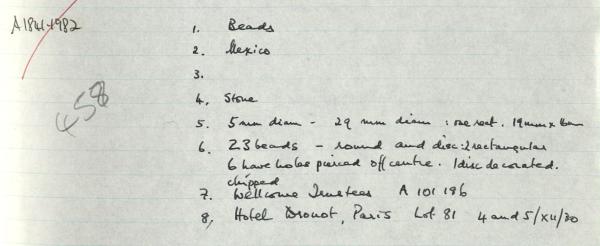 A1841-1982
1. Beads
2. Mexico
3.
458
4. Stone
5. 5mm diam - 29 mm diam : one rect. 19mm x
6. 23 beads - round and disc: 2 rectangular
6 have holes pierced off centre. 1 disc decorated.
chipped
7. Wellcome Trustees A 101 196
8. Hotel Drouot, Paris Lot 81 4 and 5/XII/30